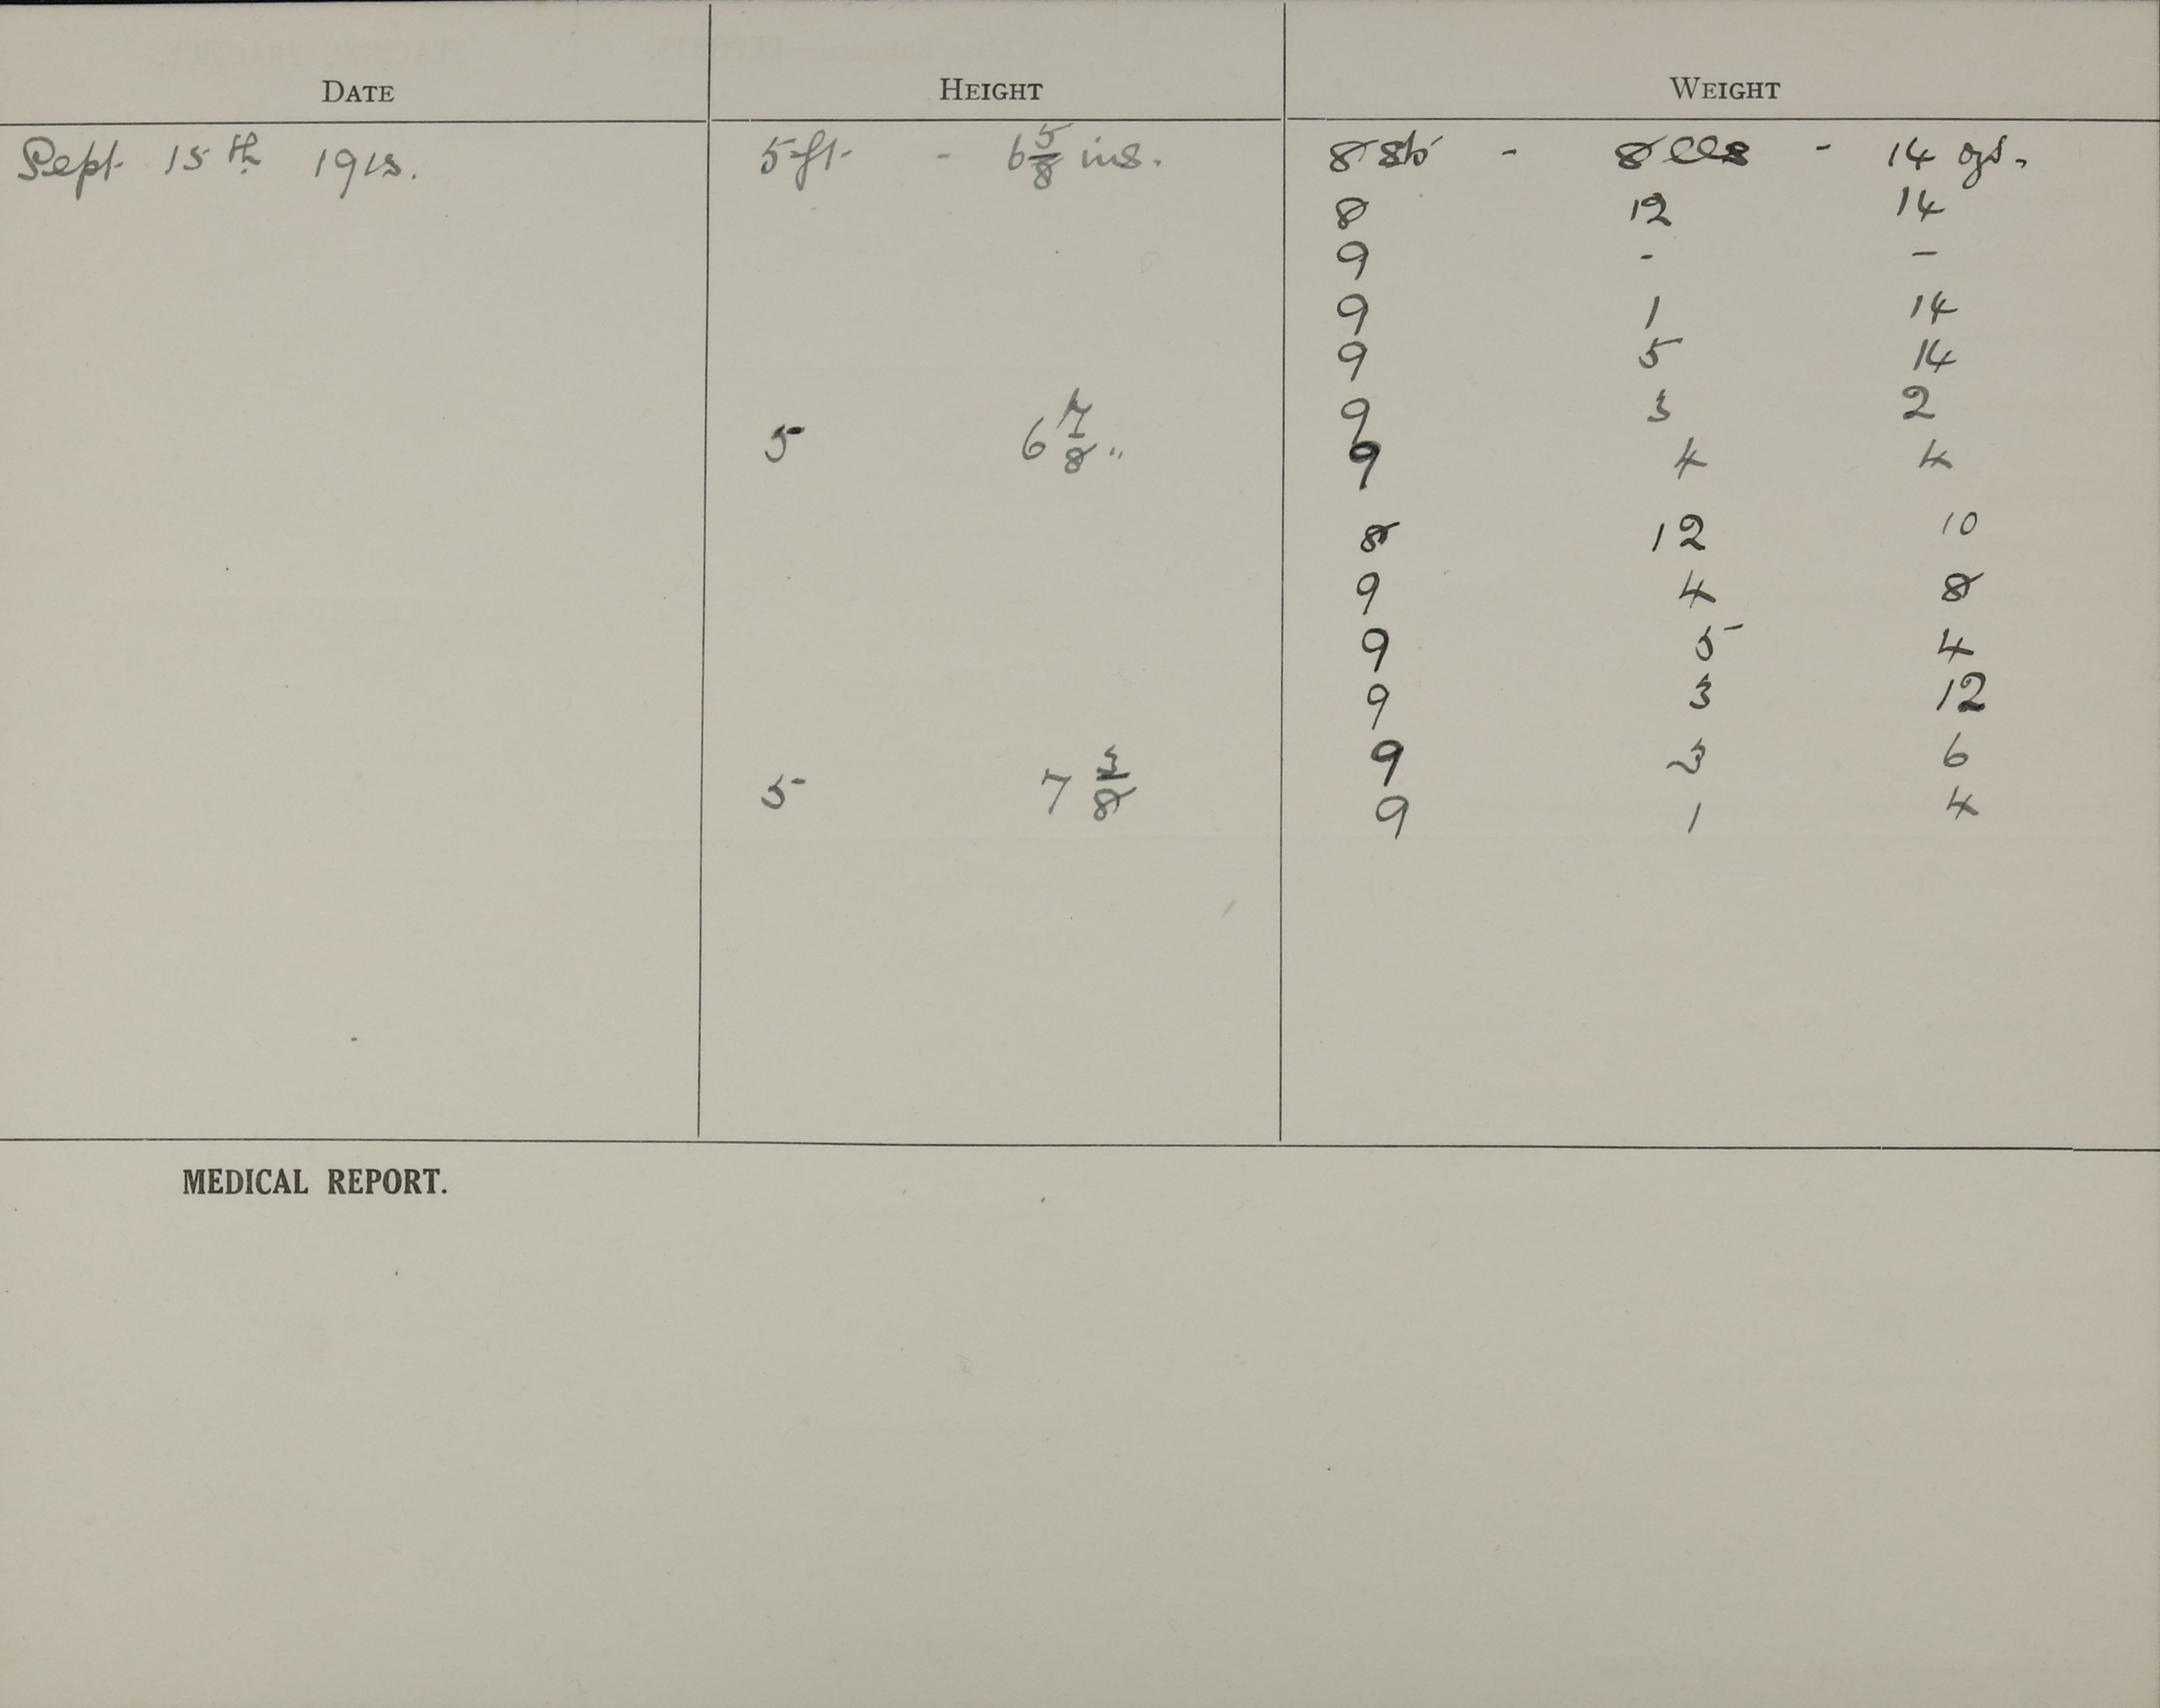 DATE HEIGHT WEIGHT
Sept 15th 1915. 5 ft - 6 5/8 ins. 8 st - 8 lbs - 14 ozs.
8 12 14
9 - -
9 1 14
9 5 14
9 3 2
5 6 7/8 " 9 4 4
8 12 10
9 4 8
9 5 4
9 3 12
9 3 6
5 7 3/8 9 1 4
MEDICAL REPORT.